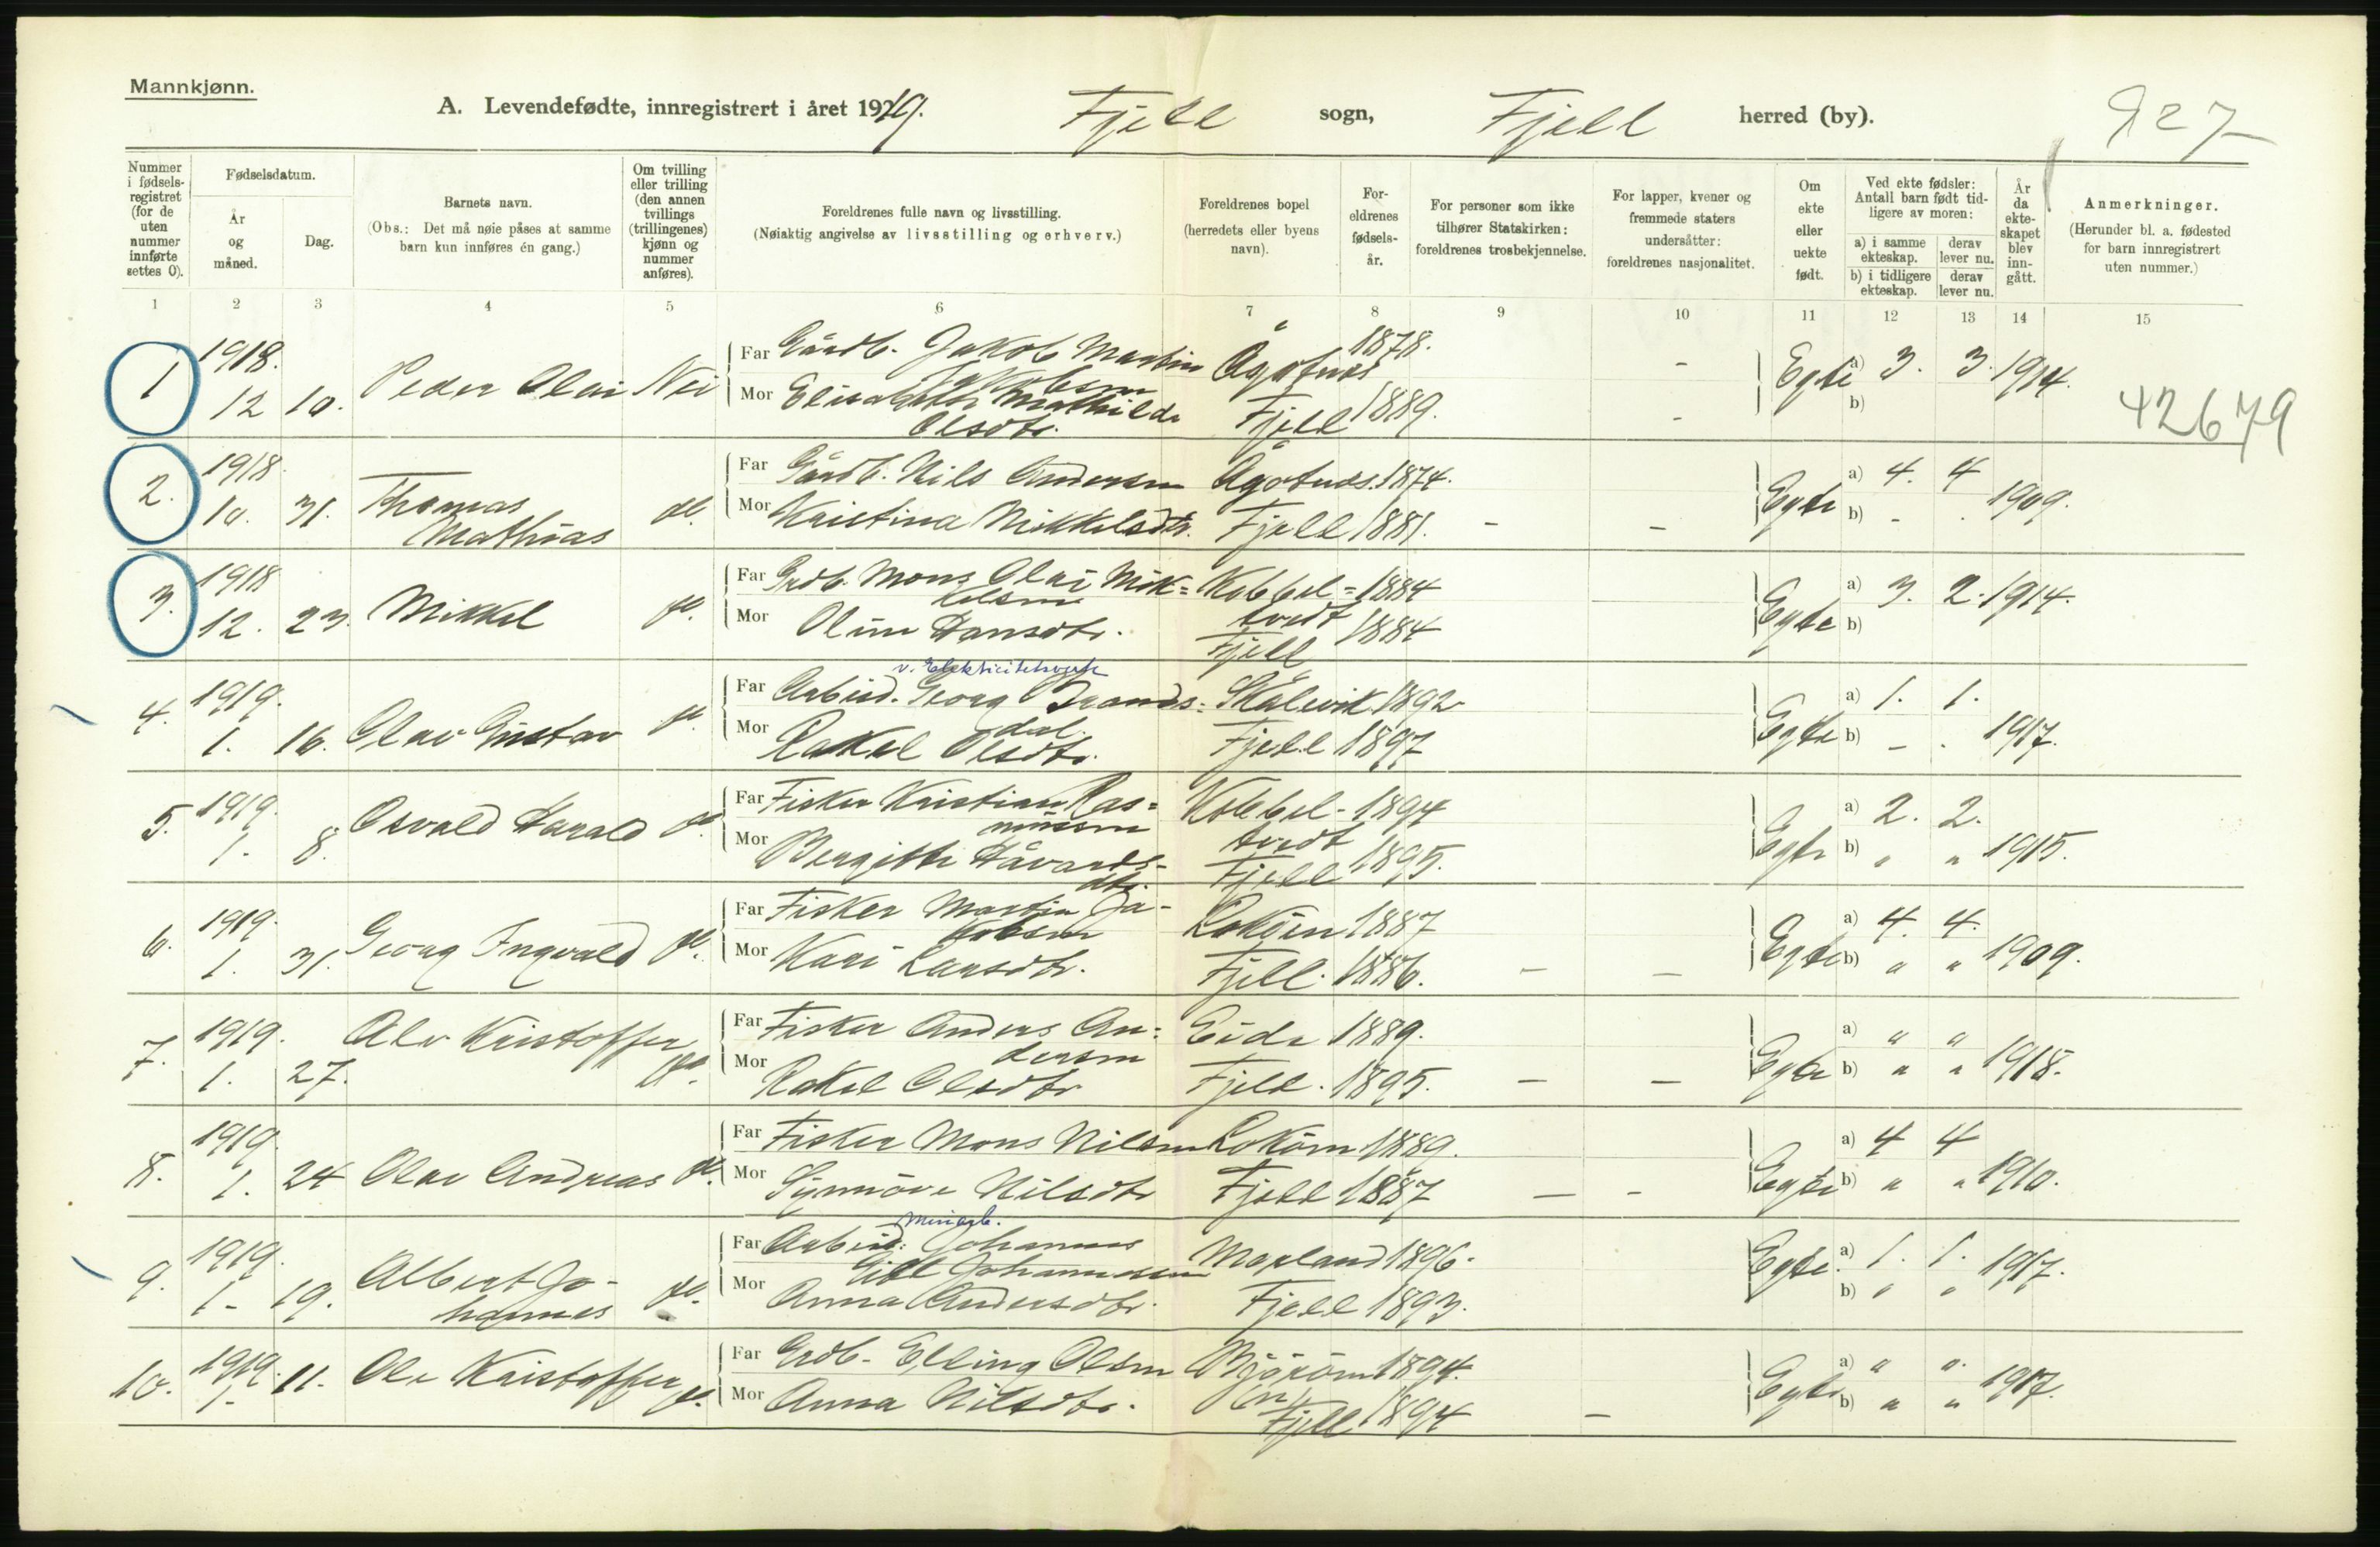 Mannkjønn.
A. Levendefødte, innregistrert i året 1919. Fjell sogn, Fjell herred (by). 927
Nummer i fødsels-registret (for de uten nummer innførte settes 0).
Fødselsdatum.
År og måned.
Dag.
Barnets navn.
(Obs.: Det må nøie påses at samme barn kun innføres én gang.)
Om tvilling eller trilling (den annen tvillings (trillingenes) kjønn og nummer anføres).
Foreldrenes fulle navn og livsstilling.
(Nøiaktig angivelse av livsstilling og erhverv.)
Foreldrenes bopel (herredets eller byens navn).
For-eldrenes fødsels-år.
For personer som ikke tilhører Statskirken: foreldrenes trosbekjennelse.
For lapper, kvener og fremmede staters undersåtter: foreldrenes nasjonalitet.
Om ekte eller uekte født.
Ved ekte fødsler: Antall barn født tid-ligere av moren:
a) i samme ekteskap.
derav lever nu.
b) i tidligere ekteskap.
derav lever nu.
År da ekte-skapet blev inn-gått.
Anmerkninger.
(Herunder bl. a. fødested for barn innregistrert uten nummer.)
1 2 3 4 5 6 7 8 9 10 11 12 13 14 15
1 1918. 12 10. Peder Olai Nei
Far Gårdb. Jakob Martin Jakobsen Ågotnes 1878. -
Mor Elisabeth Mathilde Olsdtr. Fjell 1889. -
Egte a) 3. 3. 1914.
b)
42679
2. 1918. 10. 31. Thomas Mathias do.
Far Gårdb. Nils Andersen Ågotnes. 1874.
Mor Kristina Mikkelsdtr. Fjell 1881. - -
Egte a) 4. 4 1909.
b) - .
3. 1918 12. 23. Mikkel do.
Far Grdb. Mons Olai Mik=kelsen Kobbel=tvedt 1884
Mor Oline Hansdtr. Fjell 1884
Egte a) 3. 2. 1914.
b)
4. 1919. 1. 16. Olav Gustav do.
v. Elektricitetsverk
Far Arbeid. Georg Brands=dal. Skålevik 1892
Mor Rakel Olsdtr. Fjell 1897
Egte a) 1. 1. 1917.
b) - .
5. 1919. 1. 8. Osvald Harald do.
Far Fisker Kristian Ras=mussen Kobbel-tvedt 1894
Mor Bergitte Håvards-dtr. Fjell 1895.
Egte a) 2. 2. 1915.
b) " "
6. 1919. 1. 31. Georg Ingvald do.
Far Fisker Martin Ja-kobsen Lokøen 1887
Mor Kari Larsdtr. Fjell. 1886. - -
Egte a) 4. 4. 1909.
b) " "
7. 1919. 1. 27. Alv Kristoffer do.
Far Fisker Anders An=dersen Eide 1889.
Mor Rakel Olsdtr Fjell. 1895. - -
Egte a) " " 1918.
b) " "
8. 1919. 1. 24 Olai Andreas do.
Far Fisker Mons Nilsen Lokøen 1889.
Mor Synnøve Nilsdtr Fjell 1887 - -
Egte a) 4 4 1910.
b) " "
9. 1919. 1- 19. Albert Jo-hannes do.
Minearb.
Far Arbeid: Johannes Johannessen Morland 1896.
Mor Anna Andersdtr. Fjell 1893.
Egte. a) 1. 1. 1917.
b) " "
10. 1919. 1- 11. Ole Kristoffer do.
Far Grdb- Elling Olsen Bjørøen 1894.
Mor Anna Nilsdtr. Fjell 1894 -
Egte a) " " 1917.
b) " "